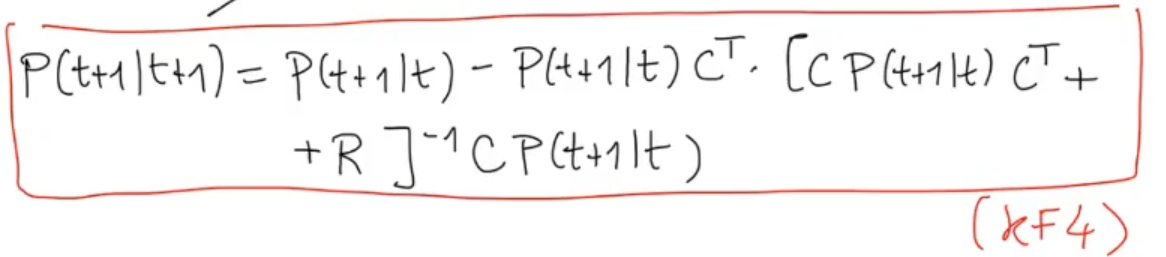 P(t+1|t+1) = P(t+1|t) - P(t+1|t) Cᵀ. [C P(t+1|t) Cᵀ +
+ R ]⁻¹ C P(t+1|t)
(KF4)